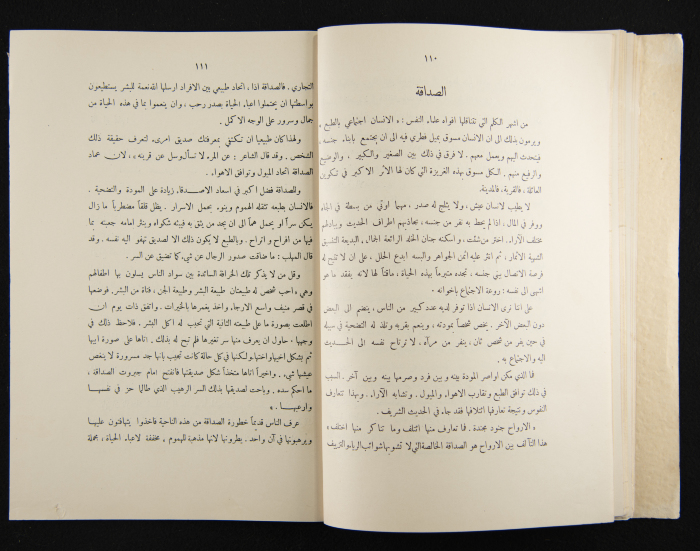 ١١٠
الصداقة
من اشهر الكلم التي تتناقلها افواه علماء النفس : « الانسان اجتماعي بالطبع »
ويرمون بذلك الى ان الانسان مسوق بميل فطري فيه الى ان يجتمع بابناء جنسه ،
فيتحدث اليهم ويعمل معهم . لا فرق في ذلك بين الصغير والكبير ، والوضيع
والرفيع منهم . الكل مسوق بهذه الغريزة التي كان لها الاثر الاكبر في تكوين
العائلة . فالقرية . فالمدينة .
لا يطيب لانسان عيش ، ولا يثلج له صدر ، مهما اوتي من بسطة في الجاه
ووفر في المال ، اذا لم يحظ به نفر من جنسه ، يجاذبهم اطراف الحديث ويبادلهم
مختلف الآراء . اختر من شئت ، واسكنه جنان الخلد الرائعة الجمال ، البديعة التنسيق
الشهية الاثمار ، ثم انثر عليه اثمن الجواهر والبسه ابدع الحلل ، على ان لا تتيح له
فرصة الاتصال ببني جنسه . تجده متبرماً بهذه الحياة ، ماقتاً لها لانه يفقد ما هو
اشهى الى نفسه : روعة الاجتماع باخوانه .
على اننا نرى الانسان اذا توفر لديه عدد كبير من الناس ، ينضم الى البعض
دون البعض الآخر . يخص شخصاً بمودته ، وينعم بقربه وتلذ له التضحية في سبيله
في حين يفر من شخص ثان ، ينفر من مرآه ، لا ترتاح نفسه الى الحديث
اليه والاجتماع به .
فما الذي مكن اواصر المودة بينه وبين فرد وصرمها بينه وبين آخر . السبب
في ذلك توافق الطبع وتقارب الاهواء والميول . وتشابه الآراء . وبهذا تتعارف
النفوس ونتيجة تعارفها ائتلافها فقد جاء في الحديث الشريف .
« الارواح جنود مجندة . فما تعارف منها ائتلف وما تناكر منها اختلف »
هذا التآلف بين الارواح هو الصداقة الخالصة التي لا تشوبها شوائب الرياء والتزييف
١١١
التجاري . فالصداقة اذا ، اتحاد طبيعي بين الافراد ارسلها الله نعمة للبشر يستطيعون
بواسطتها ان يحتملوا اعباء الحياة بصدر رحب ، وان ينعموا بما في هذه الحياة من
جمال وسرور على الوجه الاكمل .
ولهذا كان طبيعيا ان تكتفي بمعرفتك صديق امرىء لتعرف حقيقة ذلك
الشخص . وقد قال الشاعر : عن المرء لا تسأل وسل عن قرينه » ، لان عماد
الصداقة اتحاد الميول وتوافق الاهواء .
وللصداقة فضل اكبر في اسعاد الاصدقاء زيادة على المودة والتضحية .
فالانسان بطبعه تثقله الهموم وينوء بحمل الاسرار . يظل قلقاً مضطرباً ما زال
يكن سراً او يحمل هماً الى ان يجد من يثق به فيبثه شكواه وينثر امامه جعبته بما
فيها من افراح و اتراح . وبالطبع لا يكون ذلك الا لصديق تهفو اليه نفسه . وقد
قال المهلب : ما ضاقت صدور الرجال عن شيء كما تضيق عن السر .
وقل من لا يذكر تلك الخرافة السائدة بين سواد الناس يسلون بها اطفالهم
وهي ، احب شخص له طبيعتان طبيعة البشر وطبيعة الجن ، فتاة من البشر . فوضعها
في قصر منيف واسع الارجاء واخذ يغمرها بالخيرات . واتفق ذات يوم ان
اطلعت بصورة ما على طبيعته الثانية التي تحبب له اكل البشر . فلاحظ ذلك في
وجهها . حاول ان يعرف منها سر تغيرها فلم تبح له بذلك . اتاها على صورة ابيها
ثم بشكل اخيها واختها ولكنها في كل حالة كانت تجيب بانها جد مسرورة لا ينغص
عيشها شيء . واخيراً اتاها متخذاً شكل صديقتها فانفتح امام جبروت الصداقة ،
ما احكم سده . وباحت لصديقتها بذلك السر الرهيب الذي طالما حز في نفسها
وارعبها . »
عرف الناس قديماً خطورة الصداقة من هذه الناحية فاخذوا يتهافتون عليها
ويرهبونها في آن واحد . يطرونها لانها مذهبة للهموم ، مخففة لاعباء الحياة ، مجملة